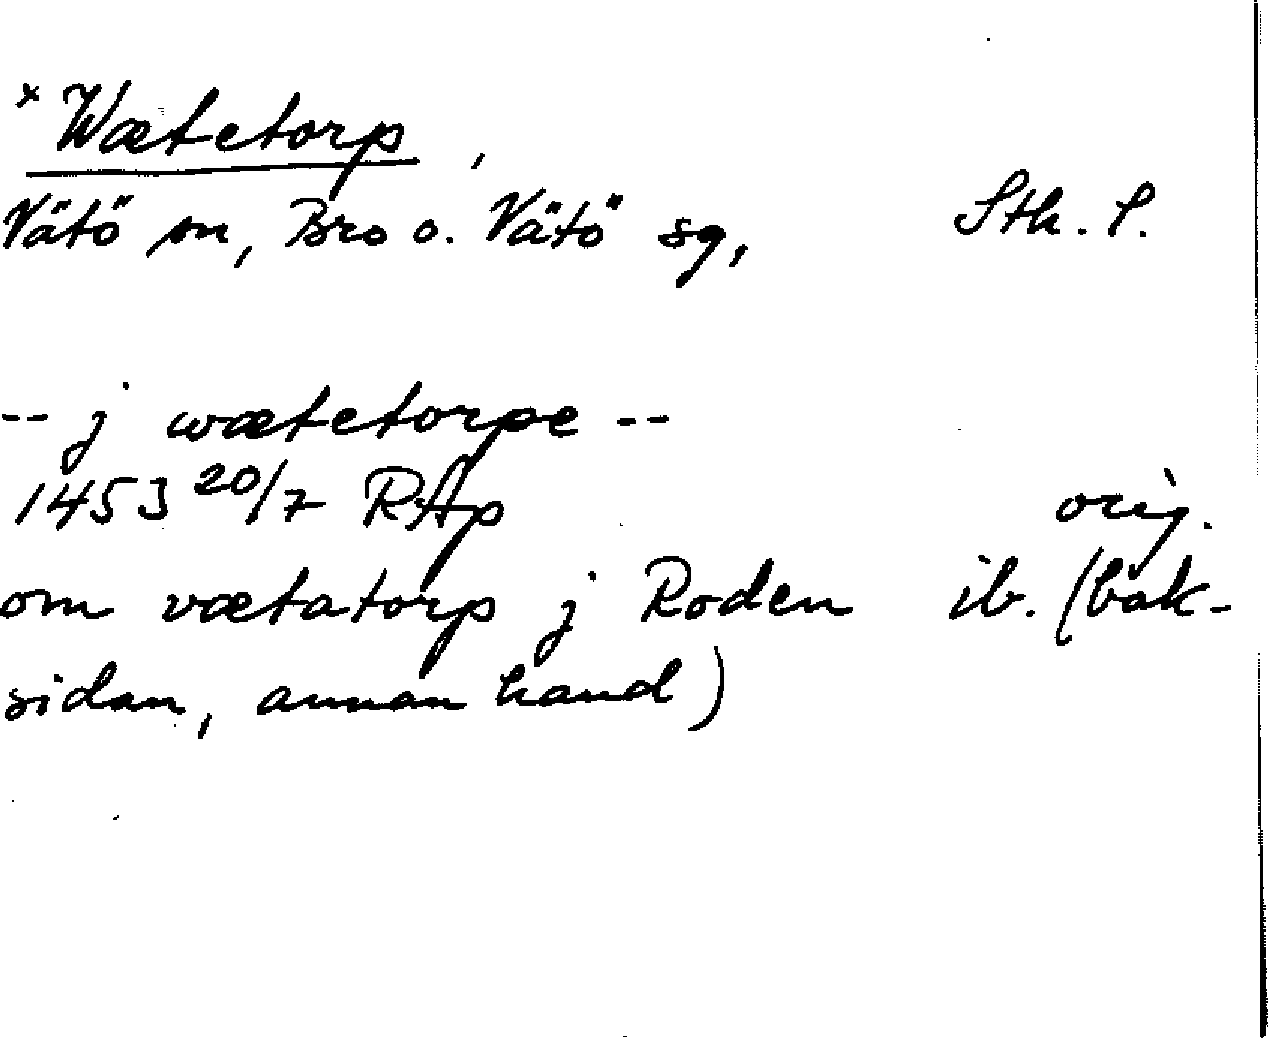 × Wætetorp,
Vätö sn, Bro o. Vätö sg, Sth. l.
-- j wætetorpe --
1453 20/7 RAp orig.
om vætatorp j Roden ib. (bak-
sidan, annan hand)